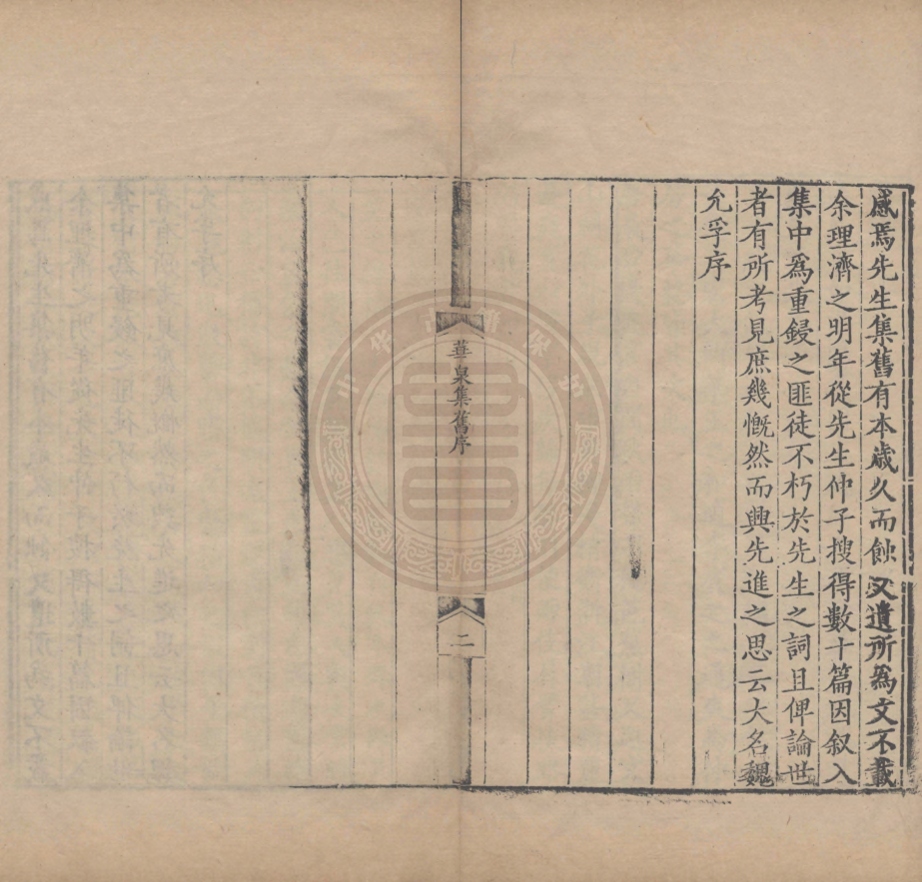 感焉先生集舊有本歲久而蝕又遺所爲文不載
余理濟之明年從先生仲子搜得數十篇因叙入
集中爲重鋟之匪徒不朽於先生之詞且俾論世
者有所考見庶幾慨然而興先進之思云大名魏
允孚序
華泉集舊序
二